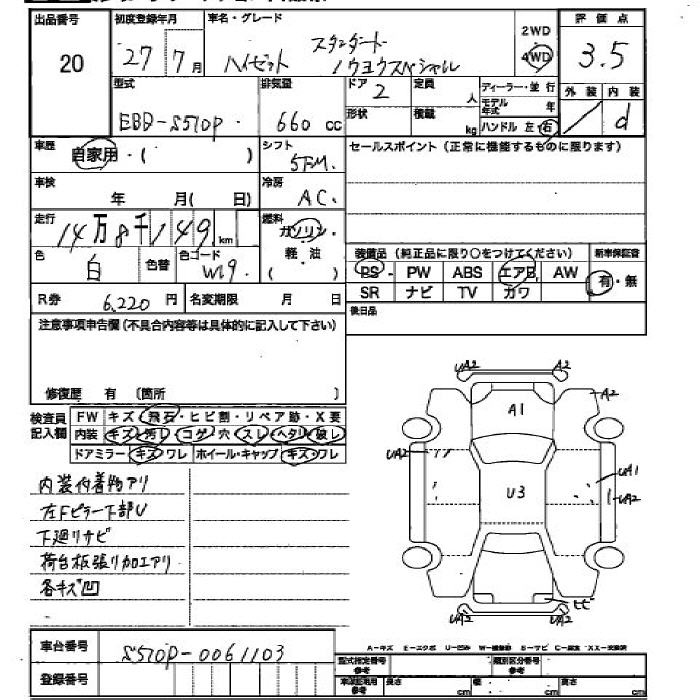 出品番号 初度登録年月 車名・グレード 2WD 評価点
20 27 7月 ハイゼット スタンダード ノウヨウスペシャル 4WD 3.5
型式 排気量 ドア 定員 ディーラー・並行 外装 内装
EBD-S510P 660 cc 2 人 モデル年式 年 / d
形状 積載 kg ハンドル 左・右
車歴 自家用・( ) シフト 5FM. セールスポイント(正常に機能するものに限ります)
車検 年 月( 日) 冷房 AC.
走行 14万8千149 km 燃料 ガソリン・軽・油 ( )
装備品(純正品に限り○をつけてください) 新車保証書
色 白 色替 色コード W19. PS PW ABS エアB AW 有・無
R券 6,220円 名変期限 月 日 SR ナビ TV カワ
注意事項申告欄(不具合内容等は具体的に記入して下さい) 後日品
修復歴 有 〔箇所 〕
検査員記入欄 FW キズ・飛石・ヒビ割・リペア跡・X要
内装 キズ・汚レ・コゲ・穴・スレ・ヘタリ・破レ
ドアミラー キズ・ワレ ホイール・キャップ キズ・ワレ
内装付着物アリ
左Fピラー下部U
下廻りサビ
荷台板張り加工アリ
各キズ凹
UA2 A2
A1 A2
UA2 UA1
U3 UA2
ヒビ
UA2 UA2
A-キズ E-エクボ U-凹み
車台番号 S510P-0061103
型式指定番号 参考 類別区分番号 参考
登録番号 長さ cm 幅 cm 高さ cm